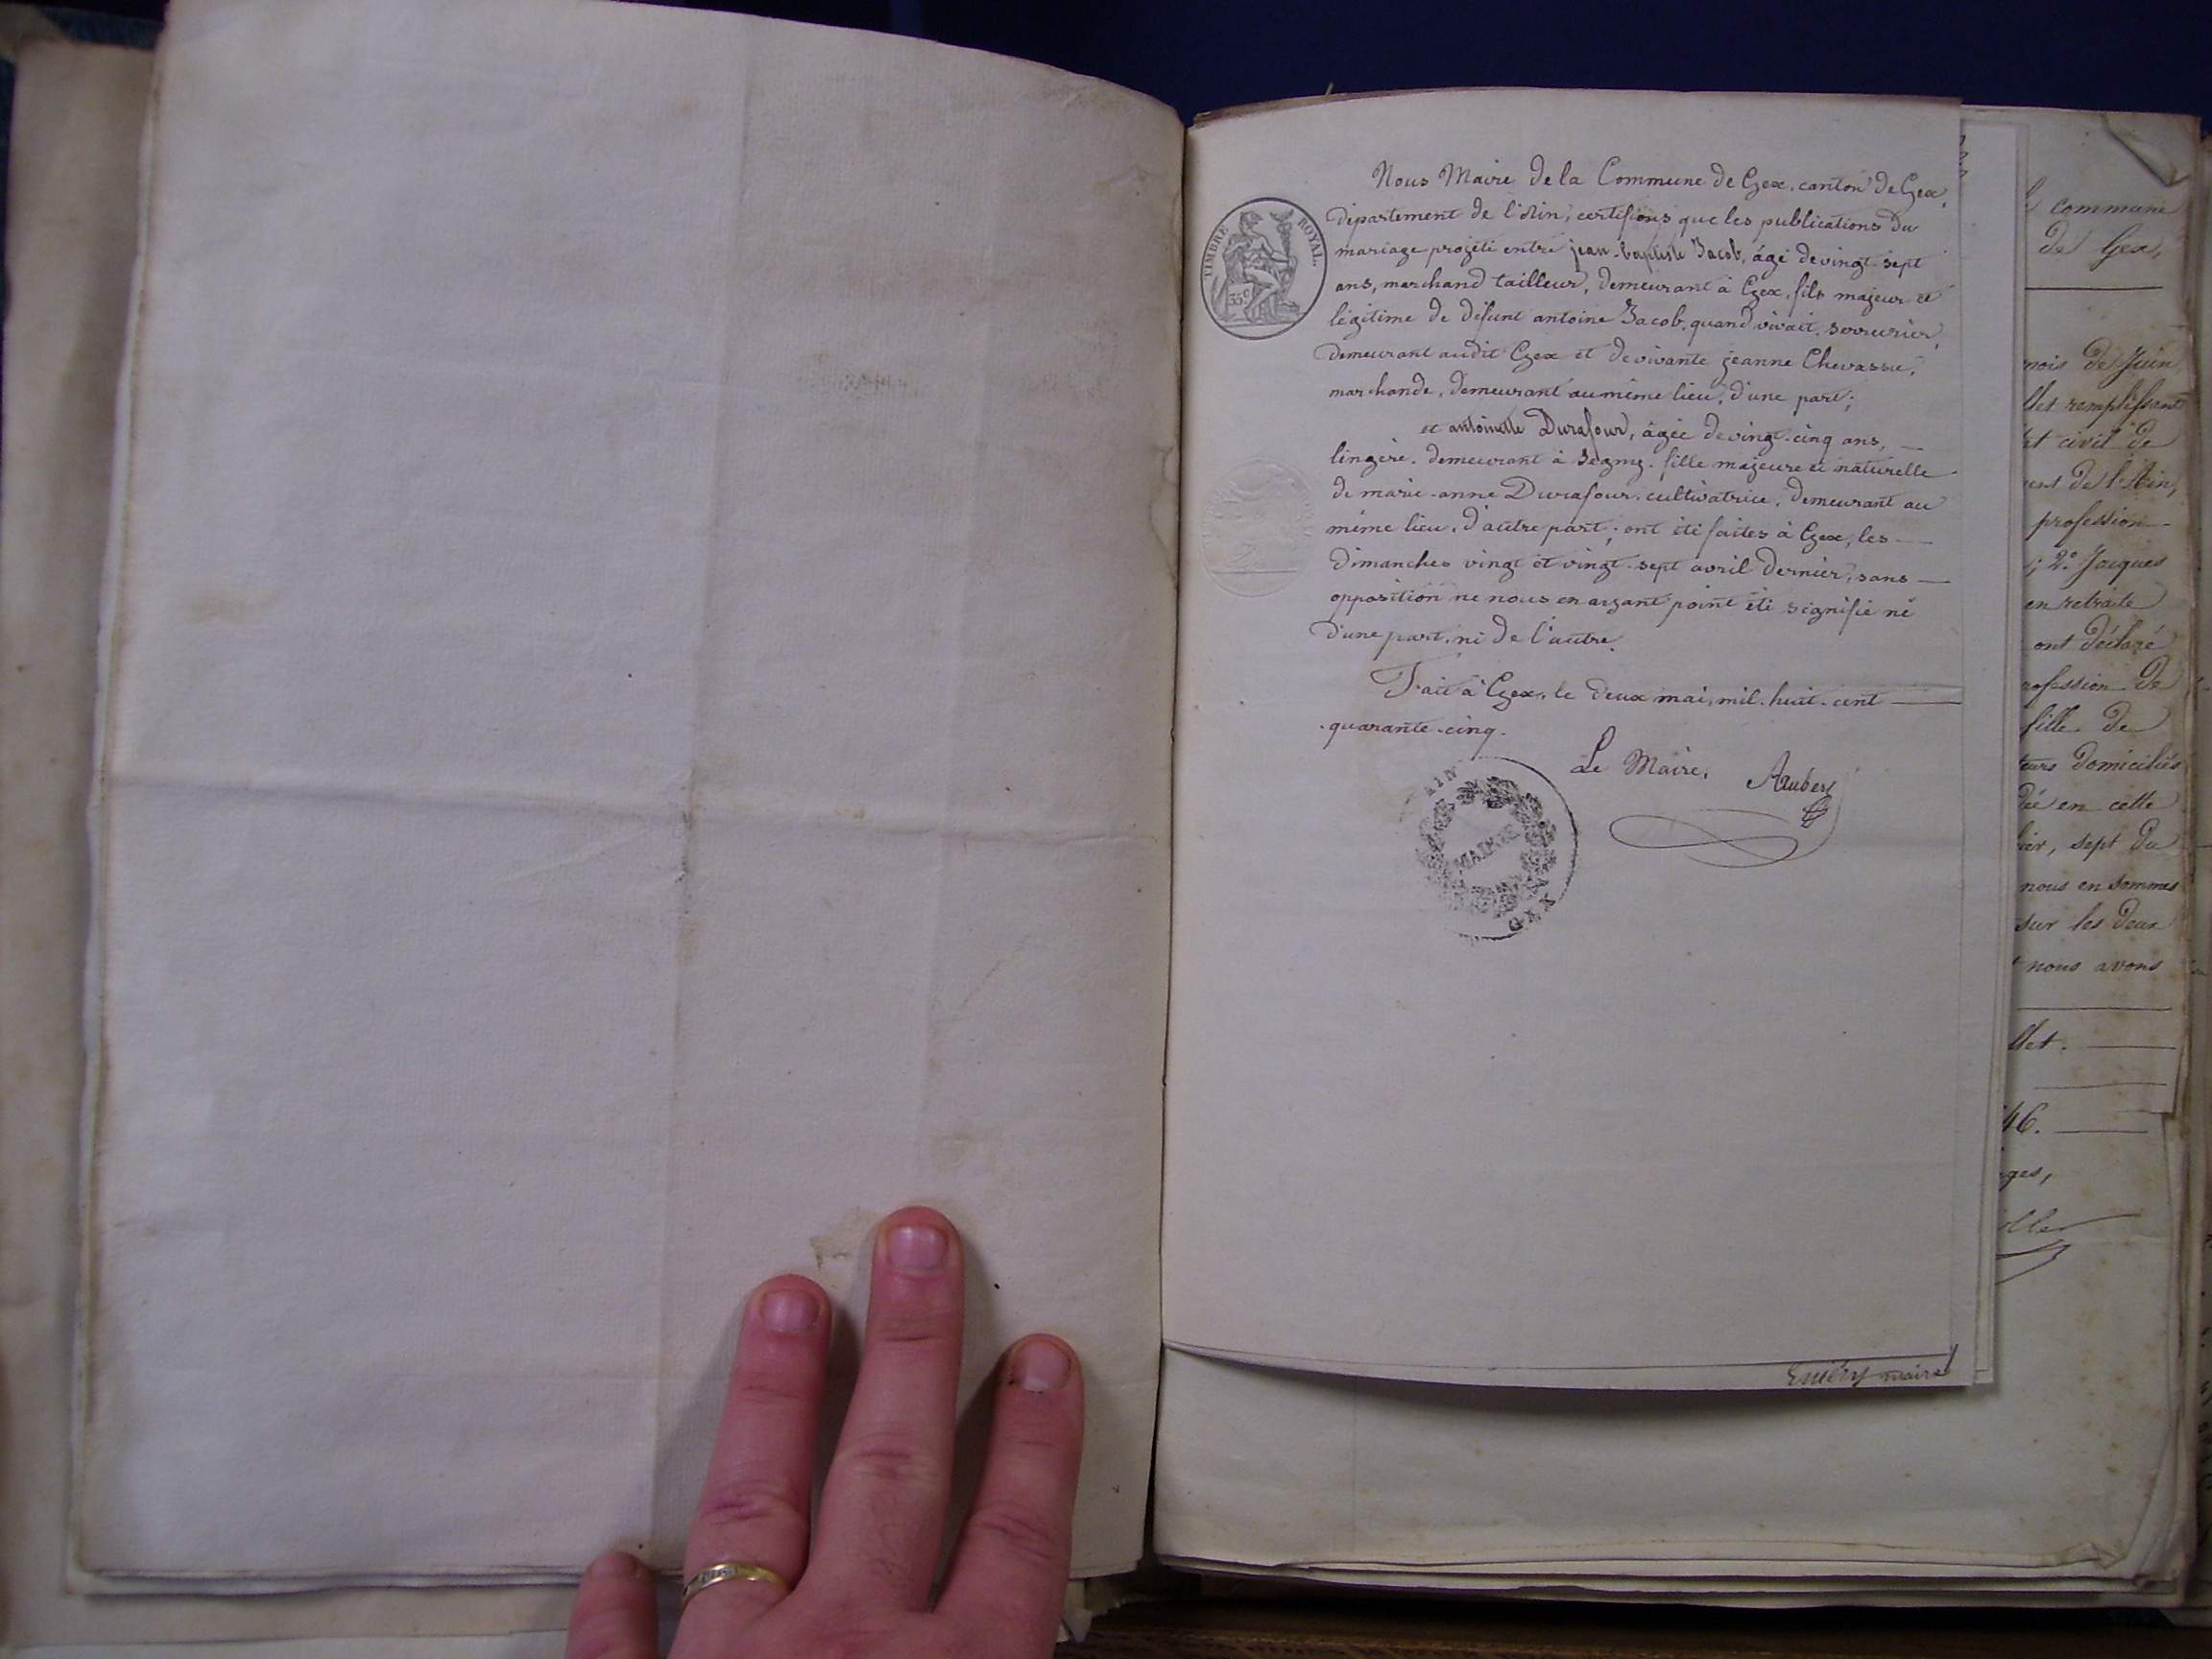 Nous Maire de la Commune de Gex, canton de Gex,
département de l'Ain, certifions que les publications du
mariage projeté entre jean-baptiste Jacob, âgé de vingt-sept
ans, marchand tailleur, demeurant à Gex, fils majeur et
légitime de défunt antoine Jacob, quand vivait, serrurier,
demeurant audit Gex et de vivante jeanne Chevassu,
marchande, demeurant au même lieu, d'une part;
et antoinette Durafour, âgée de vingt-cinq ans,
lingère, demeurant à Ségny, fille majeure et naturelle
de marie-anne Durafour, cultivatrice, demeurant au
même lieu, d'autre part; ont été faites à Gex, les
dimanches vingt et vingt-sept avril dernier, sans
opposition ne nous en ayant point été signifié ni
d'une part, ni de l'autre.
Fait à Gex, le deux mai, mil-huit-cent
quarante-cinq.
Le Maire, Aubert
TIMBRE ROYAL.
35 c
AIN
MAIRIE
GEX
Emery maire
commune
de Gex,
mois de Juin
llet remplissant
civil de
de l'Ain,
profession
; 2° Jacques
en retraite
ont déclaré
profession de
fille de
domiciliés
en cette
sept du
nous en sommes
sur les deux
nous avons
llet.
46.